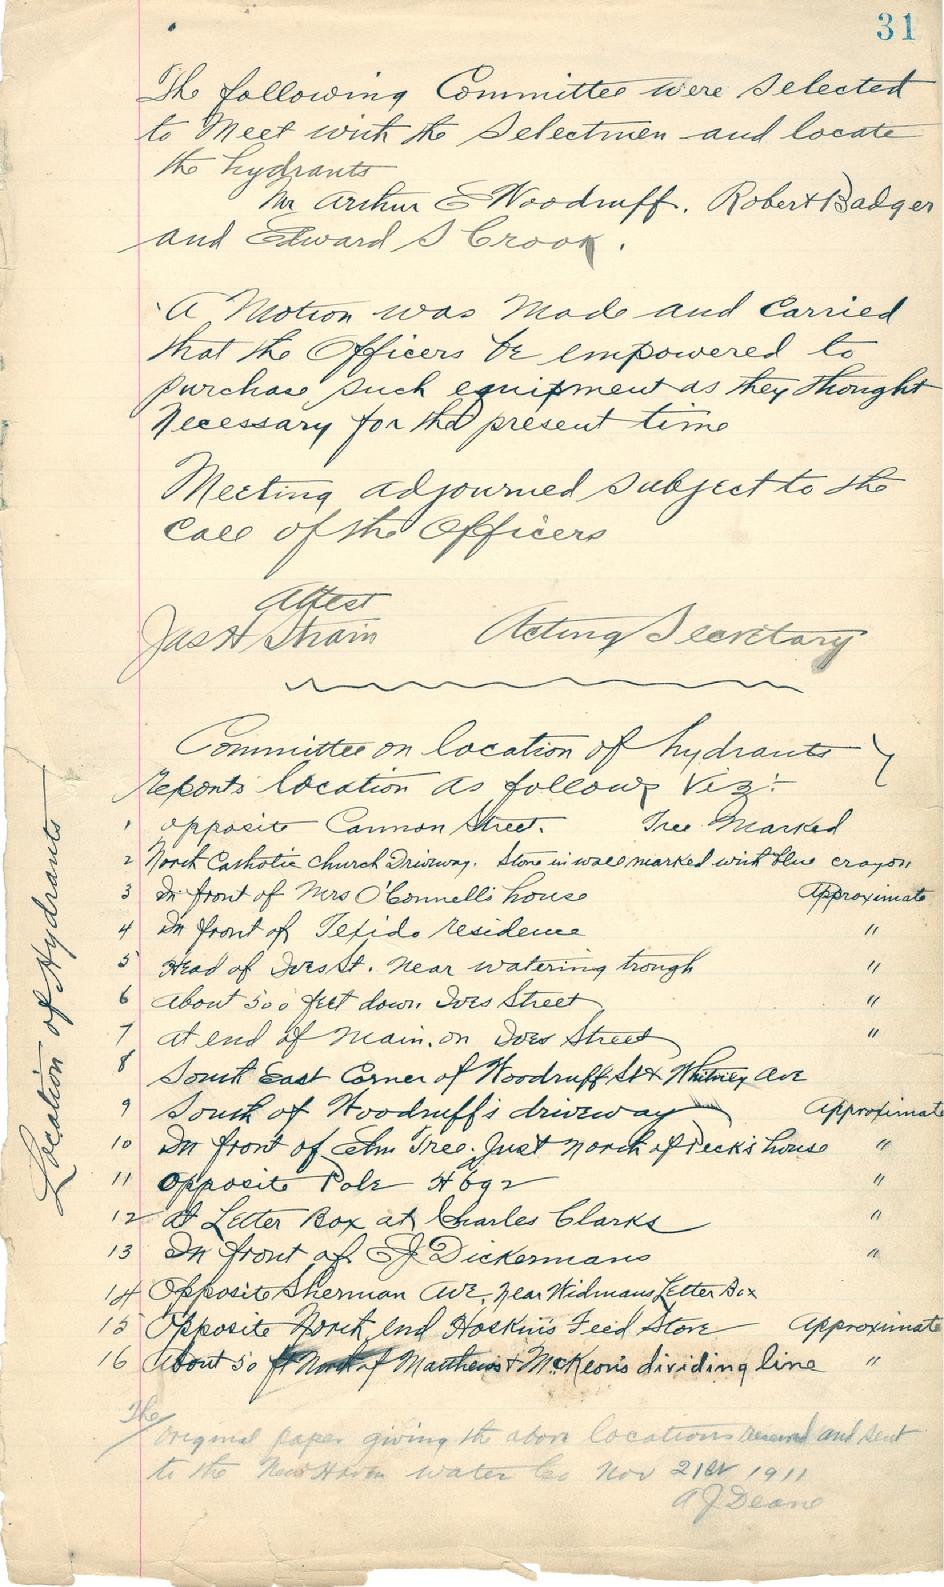 31
The following Committee were Selected
to Meet with the Selectmen and locate
the hydrants
Mr Arthur E Woodruff. Robert Badger
and Edward S Crook.
A Motion was Made and Carried
that the Officers be empowered to
purchase such equipment as they thought
Necessary for the present time
Meeting adjourned subject to the
Call of the Officers
Attest
Jas H Strain Acting Secretary
Committee on location of hydrants
reports location as follows Viz:-
Location of Hydrants
1 opposite Cannon Street. Tree Marked
2 North Catholic Church Driveway. Stone in wall marked with blue crayon
3 In front of Mrs O'Connell's house Approximate
4 In front of Texido residence "
5 Head of Ives St. near watering trough "
6 About 500 feet down Ives Street "
7 at end of Main. on Ives Street "
8 South East Corner of Woodruff St & Whitney Ave
9 South of Woodruff's driveway Approximate
10 In front of Elm Tree. Just North of Peck's house "
11 opposite Pole #692 "
12 at Letter Box at Charles Clarks "
13 In front of EJ Dickermans "
14 Opposite Sherman Ave. near Widmans Letter Box
15 Opposite North End Hoskin's Feed Store Approximate
16 About 50 ft North of Matthews & McKeon's dividing line "
The original paper giving the above locations and sent
to the New Haven water Co Nov 21st 1911
A J Deane